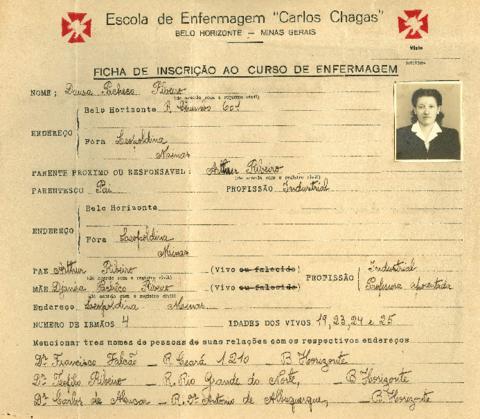 Escola de Enfermagem "Carlos Chagas"
BELO HORIZONTE — MINAS GERAIS
Visto
FICHA DE INSCRIÇÃO AO CURSO DE ENFERMAGEM
NOME: Pacheco Ribeiro
(de acordo com o registro civil)
Belo Horizonte R. 601
ENDEREÇO
Fora Leopoldina
Minas
PARENTE PROXIMO OU RESPONSAVEL: Arthur Ribeiro
(de acordo com o registro civil)
PARENTESCO Pai PROFISSÃO Industrial
Belo Horizonte
ENDEREÇO
Fora Leopoldina
Minas
PAE Arthur Ribeiro (Vivo ou falecido) Industrial
(de acordo com o registro civil) PROFISSÃO
MÃE Djanira Pachêco Ribeiro (Vivo ou falecido) Professora aposentada
(de acordo com o registro civil)
Endereço Leopoldina Minas
NÚMERO DE IRMÃOS 4 IDADES DOS VIVOS 19, 23, 24 e 25
Mencionar tres nomes de pessoas de suas relações com os respectivos endereços
Dr. Francisco Falcão — R. Ceará 1210 — B. Horizonte
Dr. Teófilo Ribeiro — R. Rio Grande do Norte, B Horizonte
Dr. Carlos de Alencar — R. Antonio de Albuquerque, B. Horizonte